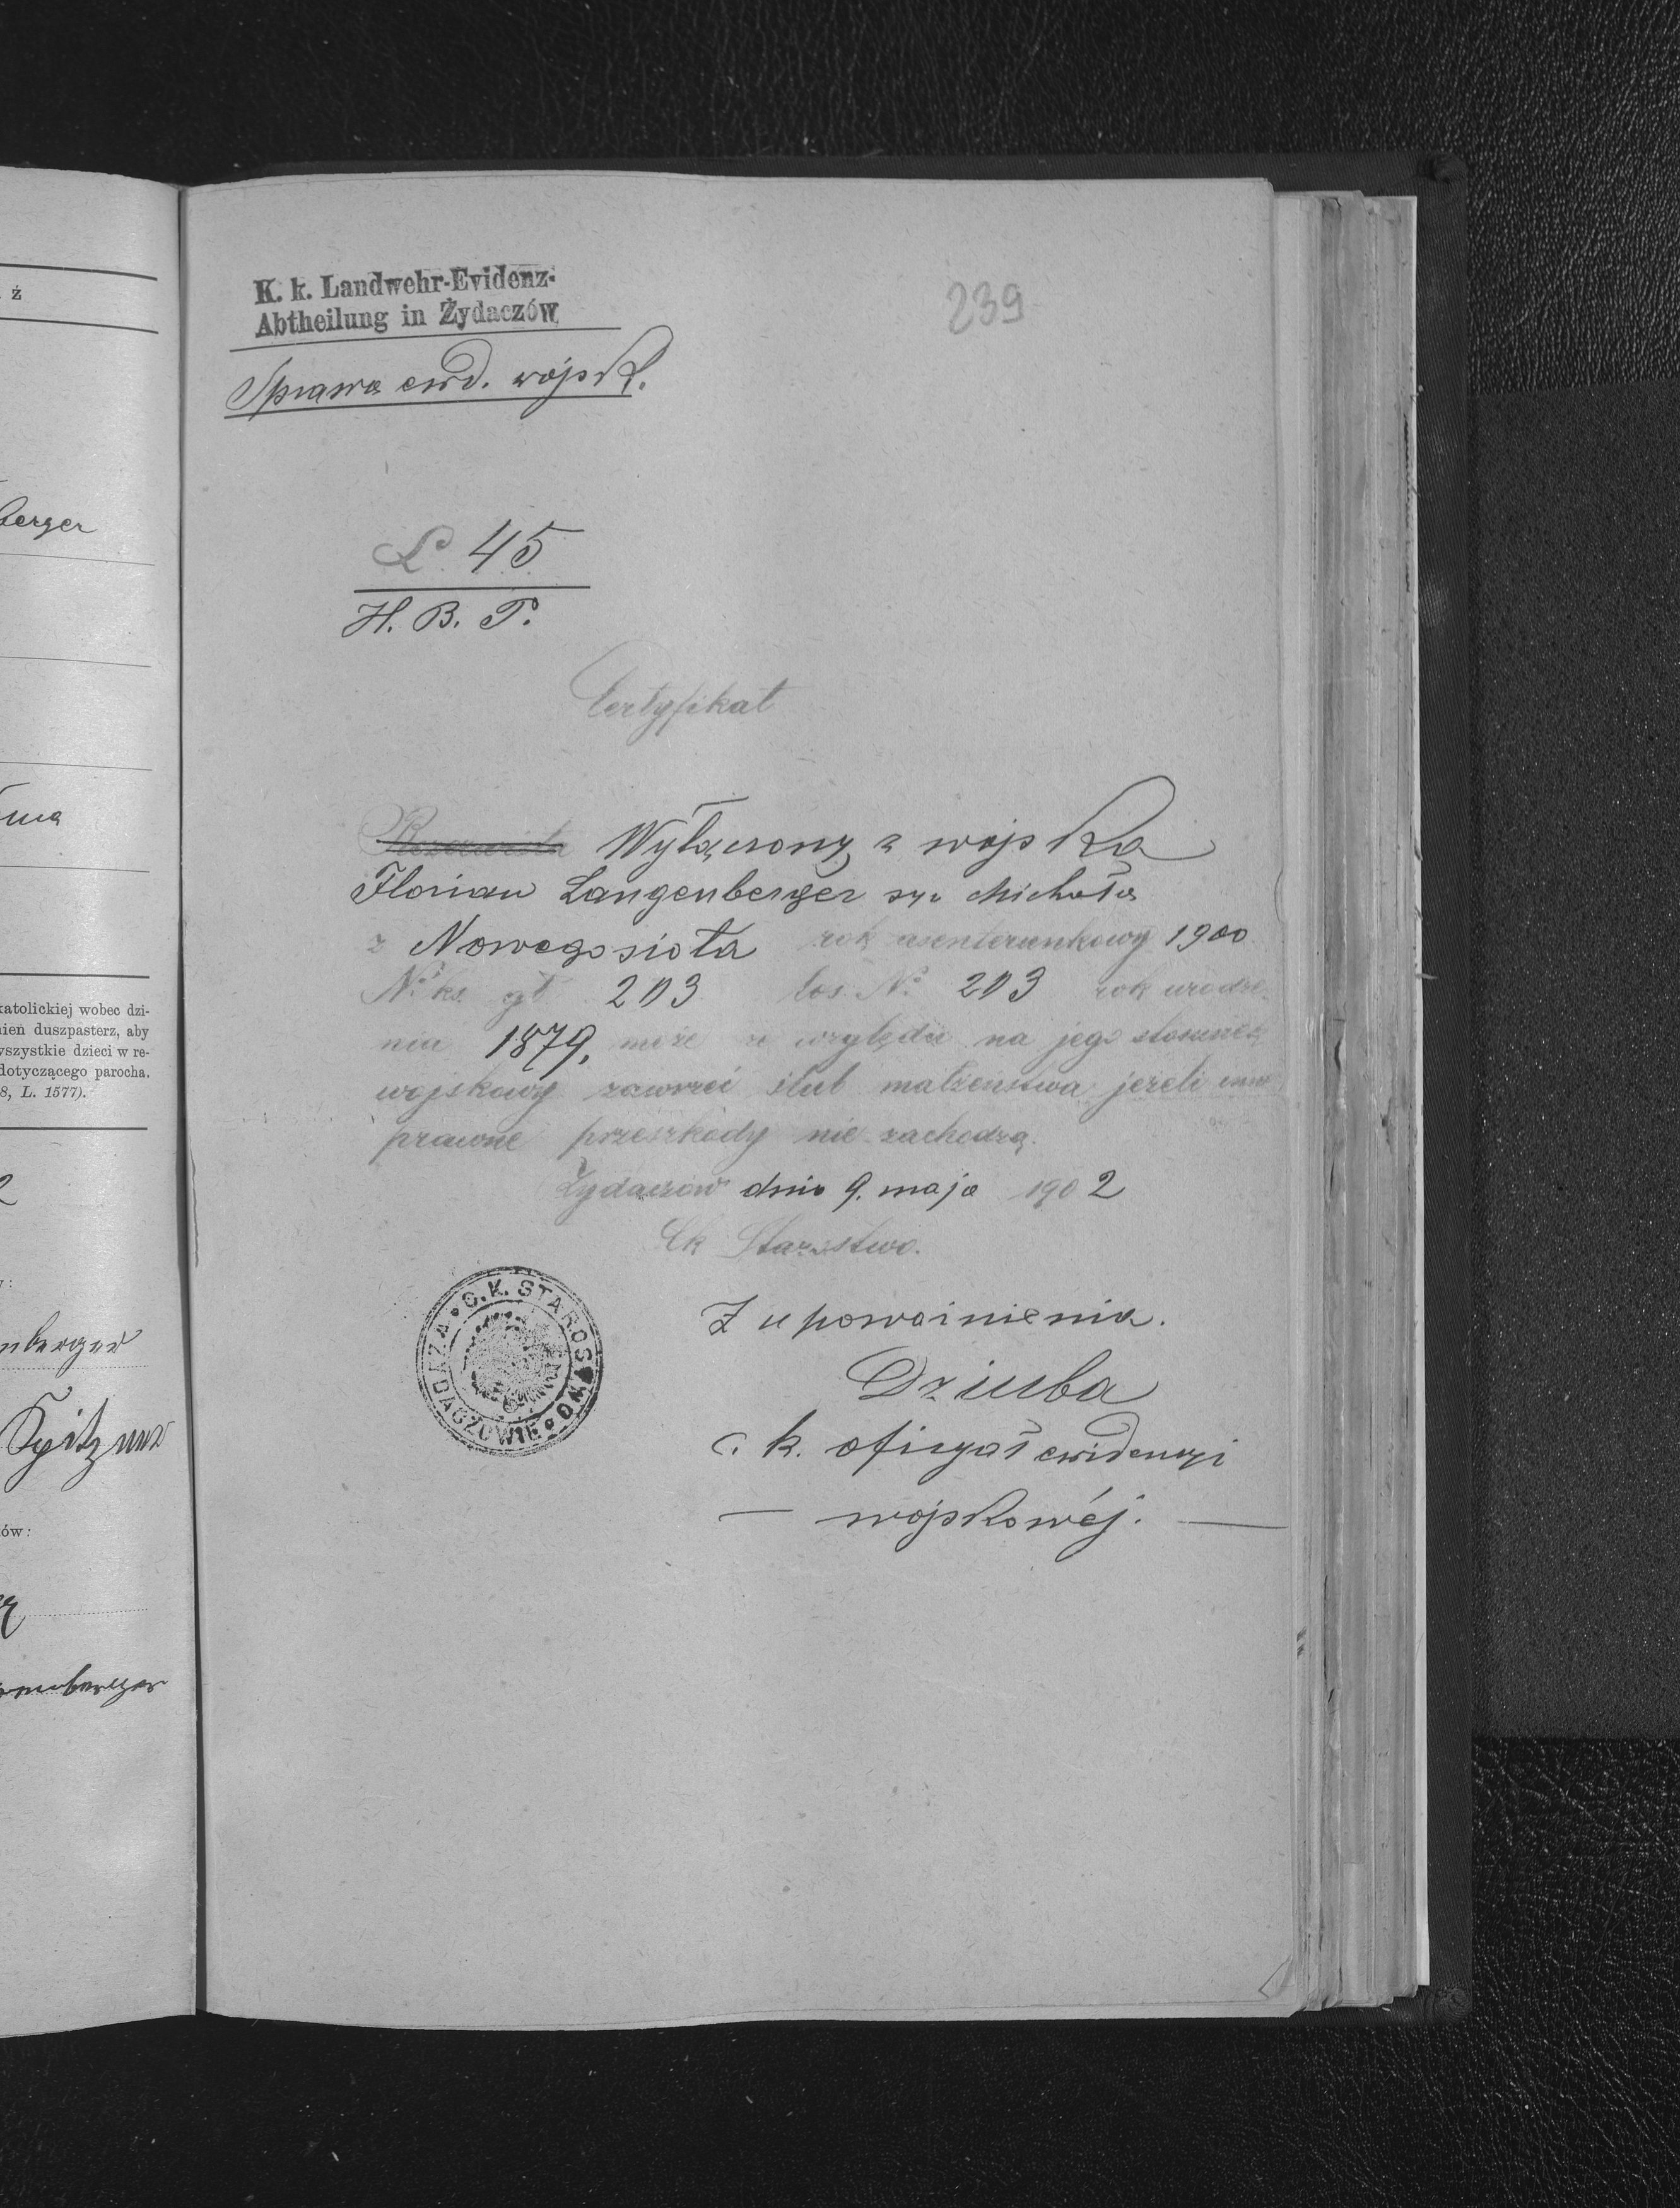 ż
berger
katolickiej wobec dzi-
nień duszpasterz, aby
wszystkie dzieci w re-
dotyczącego parocha.
8, L. 1577).
y:
nberger
Spitzner
ków:
enberger
K. k. Landwehr-Evidenz-
Abtheilung in Żydaczów
239
Sprawa ewd. wojsk.
L. 45
H. B. P.
Certyfikat
Rezerwista Wyłączony z wojska
Florian Langenberger syn Michała
z Nowegosioła rok asenterunkowy 1900
No ks. gł. 203 los. No 203 rok urodze-
nia 1879, może ze względu na jego stosunek
wojskowy zawrzeć ślub małżeństwa jeżeli inne
prawne przeszkody nie zachodzą.
Żydaczów dnia 9. maja 1902
Ck Starostwo.
C.K. STAROSTWO W ŻYDACZOWIE
Z upoważnienia.
Dziuba
c. k. oficyał ewidencyi
— wojskowéj. —